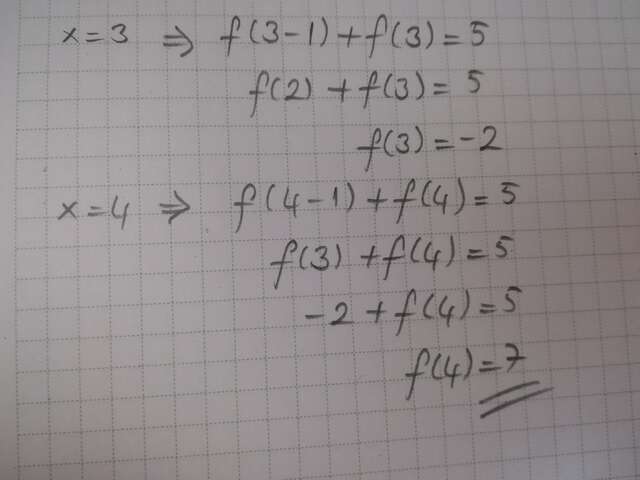 x=3 ⇒ f(3-1)+f(3)=5
f(2)+f(3)=5
f(3)=-2
x=4 ⇒ f(4-1)+f(4)=5
f(3)+f(4)=5
-2+f(4)=5
f(4)=7